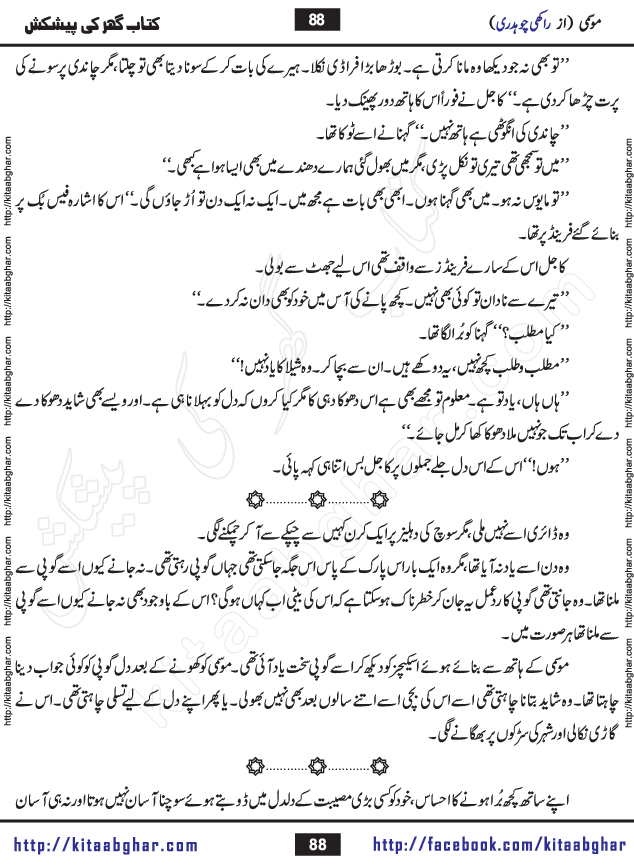 موسیٰ (از راکھی چوہدری) 88 کتاب گھر کی پیشکش
’’تو بھی نہ جو دیکھا وہ مانا کرتی ہے۔ بوڑھا بڑا فراڈی نکلا۔ ہیرے کی بات کر کے سونا دیتا بھی تو چلتا، مگر چاندی پر سونے کی
پرت چڑھا کر دی ہے۔‘‘ کاجل نے فوراً اُس کا ہاتھ دور پھینک دیا۔
’’چاندی کی انگوٹھی ہے ہاتھ نہیں۔‘‘ گہنا نے اسے ٹوکا تھا۔
’’میں تو سمجھی تھی تیری تو نکل پڑی، مگر میں بھول گئی ہمارے دھندے میں بھی ایسا ہوا ہے کبھی۔‘‘
’’تو مایوس نہ ہو۔ میں بھی گہنا ہوں۔ ابھی بھی بات ہے مجھ میں۔ ایک نہ ایک دن تو اُڑ جاؤں گی۔‘‘ اس کا اشارہ فیس بُک پر
بنائے گئے فرینڈ پر تھا۔
کاجل اس کے سارے فرینڈز سے واقف تھی اس لیے جھٹ سے بولی۔
’’تیرے سے نادان تو کوئی بھی نہیں۔ کچھ پانے کی آس میں خود کو بھی دان نہ کر دے۔‘‘
’’کیا مطلب؟‘‘ گہنا کو بُرا لگا تھا۔
’’مطلب وطلب کچھ نہیں، یہ دو دکھے ہیں۔ ان سے بچا کر۔ وہ شیلا کا یاد نہیں!‘‘
’’ہاں ہاں، یاد تو ہے۔ معلوم تو مجھے بھی ہے اس دھوکا دہی کا مگر کیا کروں کہ دل کو بہلانا ہی ہے۔ اور ویسے بھی شاید دھوکا دے
دے کر اب تک جو نہیں ملا دھوکا کھا کر مل جائے۔‘‘
’’ہوں!‘‘ اس کے اس دل جلے جملوں پر کاجل بس اتنا ہی کہہ پائی۔
وہ ڈائری اسے نہیں ملی، مگر سوچ کی دہلیز پر ایک کرن کہیں سے چپکے سے آ کر چمکنے لگی۔
وہ دن اسے یاد نہ آیا تھا، مگر وہ ایک بار اس پارک کے پاس اس جگہ جا سکتی تھی جہاں گوپی رہتی تھی۔ نہ جانے کیوں اسے گوپی سے
ملنا تھا۔ وہ جانتی تھی گوپی کا ردِعمل یہ جان کر خطرناک ہو سکتا ہے کہ اس کی بیٹی اب کہاں ہو گی؟ اس کے باوجود بھی نہ جانے کیوں اسے گوپی
سے ملنا تھا ہر صورت میں۔
موسیٰ کے ہاتھ سے بنائے ہوئے اسکیچز کو دیکھ کر اسے گوپی سخت یاد آئی تھی۔ موسیٰ کو کھونے کے بعد دل گوپی کو کوئی جواب دینا
چاہتا تھا۔ وہ شاید بتانا چاہتی تھی اسے اس کی بچی اسے اتنے سالوں بعد بھی نہیں بھولی۔ یا پھر اپنے دل کے لیے تسلی چاہتی تھی۔ اس نے
گاڑی نکالی اور شہر کی سڑکوں پر بھگانے لگی۔
اپنے ساتھ کچھ بُرا ہونے کا احساس، خود کو کسی بڑی مصیبت کے دلدل میں ڈوبتے ہوئے سوچنا آسان نہیں ہوتا اور نہ ہی آسان
http://kitaabghar.com 88 http://facebook.com/kitaabghar
http://kitaabghar.com http://kitaabghar.com http://kitaabghar.com http://kitaabghar.com http://kitaabghar.com http://kitaabghar.com
http://kitaabghar.com http://kitaabghar.com http://kitaabghar.com http://kitaabghar.com http://kitaabghar.com http://kitaabghar.com
کتاب گھر کی پیشکش
kitaabghar.com